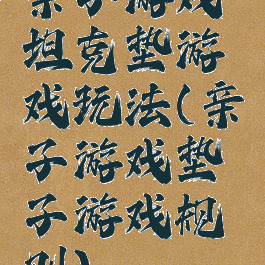 亲子游戏
坦克垫游
戏玩法(亲
子游戏垫
子游戏规
则)